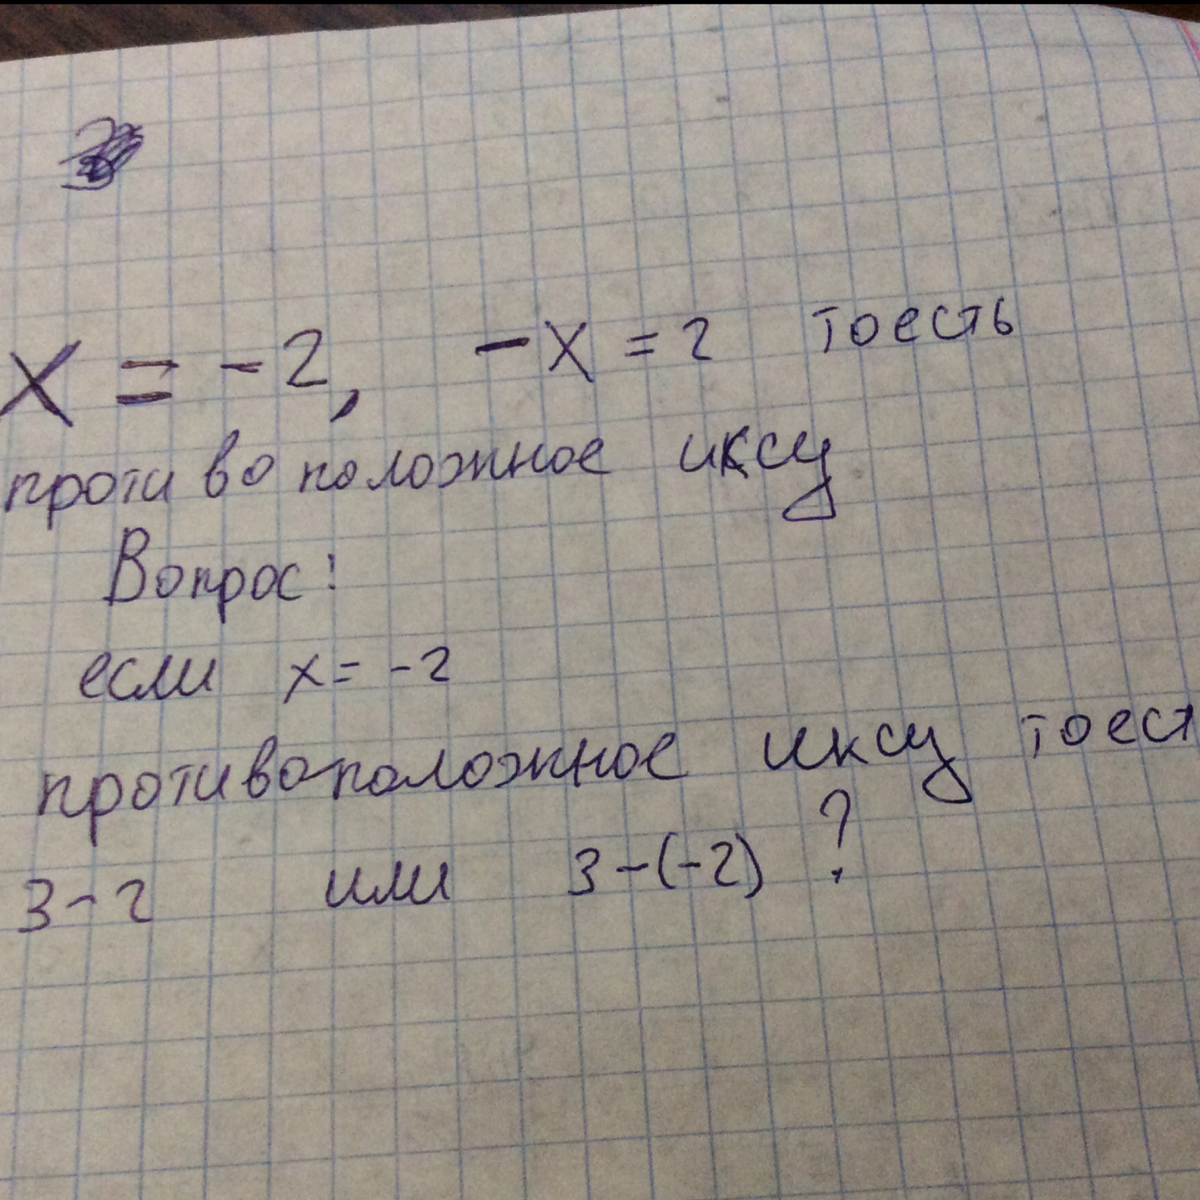 x = -2, -x = 2 тоесть
противоположное иксу
Вопрос:
если x = -2
противоположное иксу тоест
3-2 или 3-(-2) ?